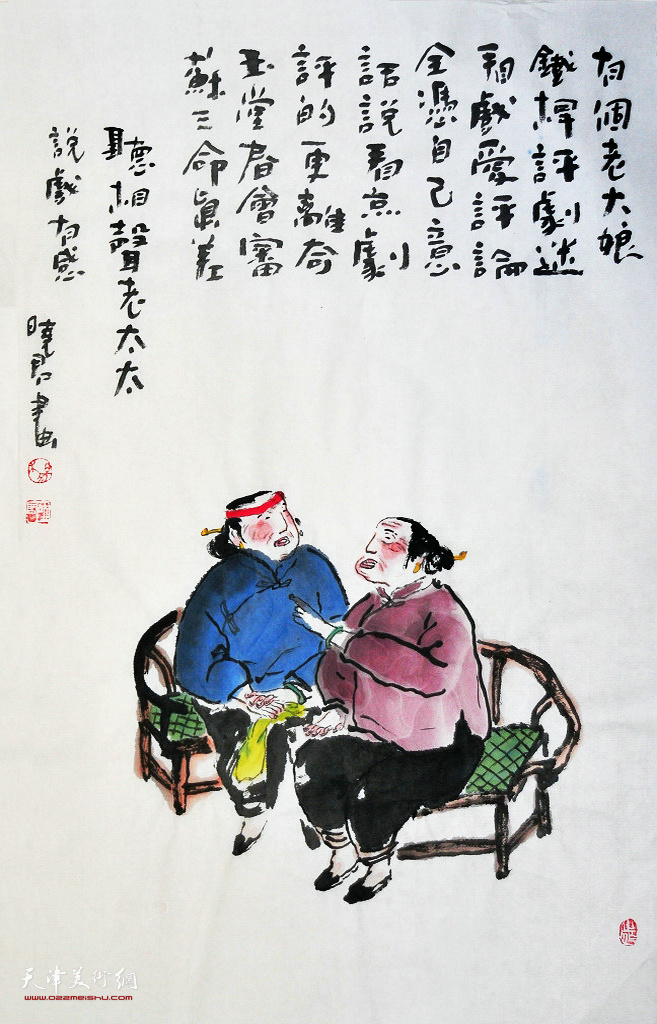 有個老大娘
鐵桿評劇迷
看戲愛評論
全憑自己意
話說看京劇
評的更離奇
玉堂春會審
蘇三命眞差
聽相聲老太太
說戲有感
天津美術網
www.022meishu.com